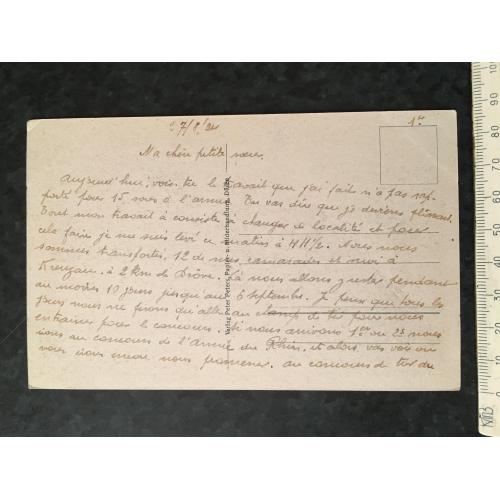 27/8/24
1er
Ma chère petite sœur,
Aujourd'hui, vois-tu le travail que j'ai fait n'a pas rap-
porté pour 15 sous à l'armée. Tu vas dire que je deviens
Tout mon travail à consisté à changer de localité et pour
cela faire je me suis levé ce matin à 4H1/2. Nous nous
sommes transportés, 12 de mes camarades et moi à
Kreuzau à 2 km de Drove. Là nous allons y rester pendant
au moins 10 jours jusqu'au 6 Septembre. Je pense que tous les
jours nous ne ferons qu'aller au champ de tir pour nous
entrainer pour le concours. Si nous arrivons 1er ou 2d nous
irons au concours de l'Armée du Rhin, et alors
nous irons encore nous promener. au concours de tir du
Verlag Peter Peters, Papier- u. Düren